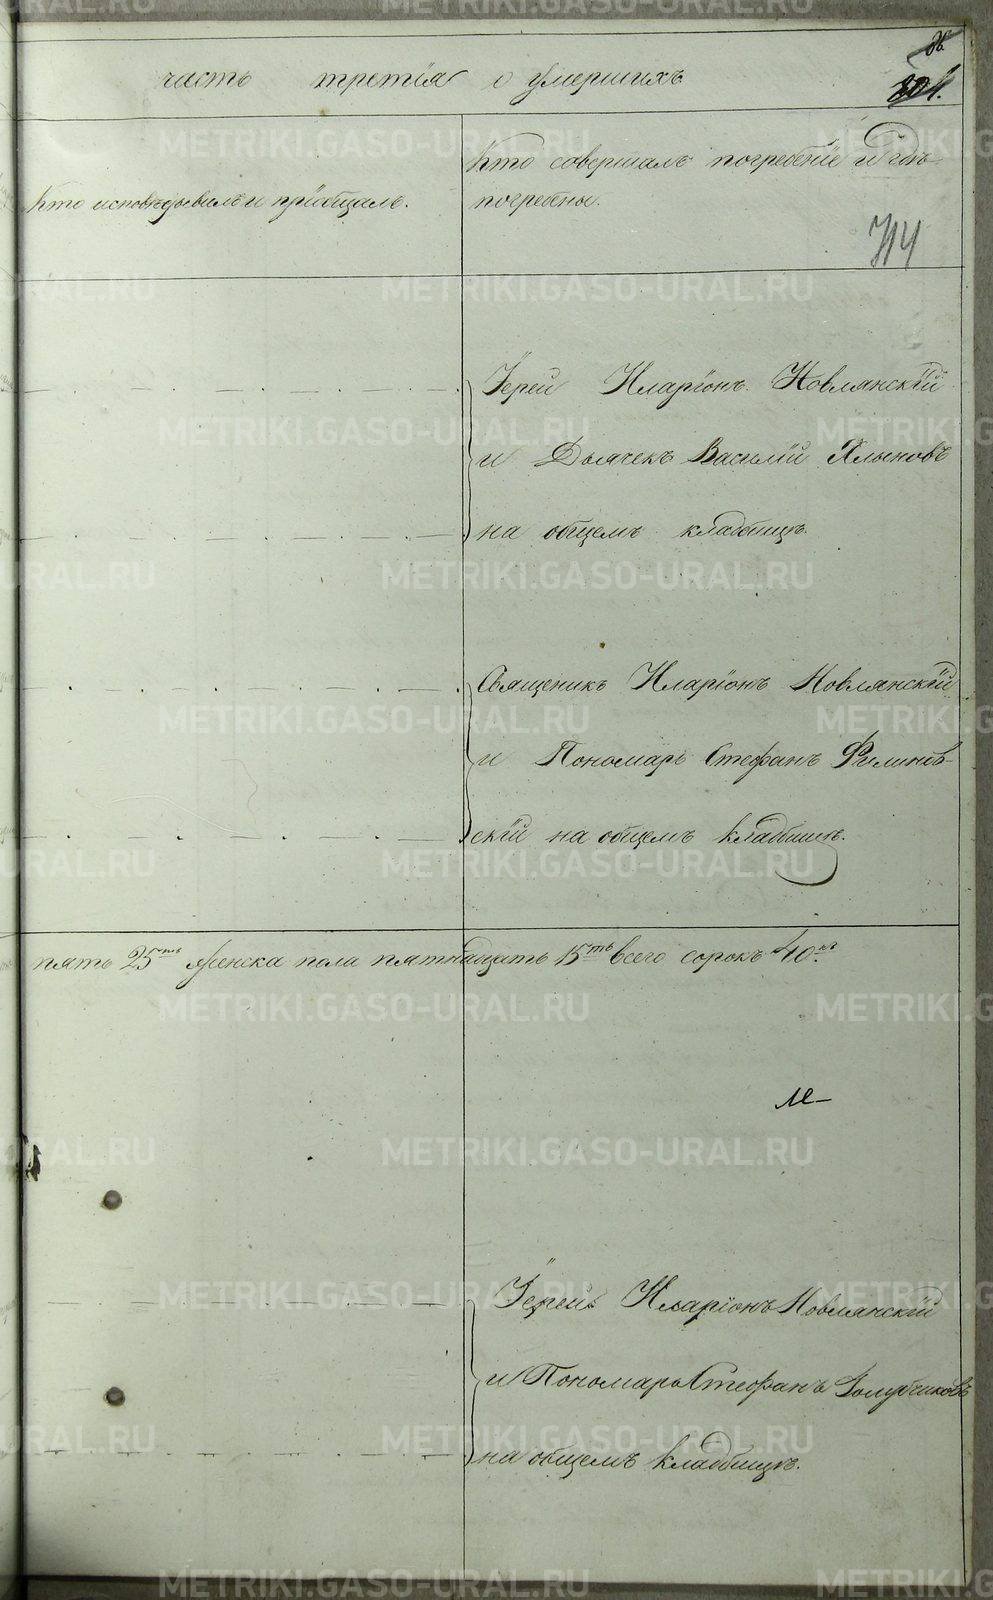 часть третія о умершихъ
Кто исповѣдывалъ и пріобщалъ.
Кто совершалъ погребеніе и гдѣ
погребены.
714
Іерей Иларіонъ Новлянскій
и Дьячекъ Василій Хлыновъ
на общемъ кладбищѣ.
Священикъ Иларіонъ Новлянскій
и Пономарь Стефанъ Филинов-
скій на общемъ кладбищѣ.
пять 25ть женска пола пятнадцать 15ть всего сорокъ 40къ
Іерей Иларіонъ Новлянскій
и Пономарь Стефанъ Голубчиковъ
на общемъ кладбищѣ.
METRIKI.GASO-URAL.RU